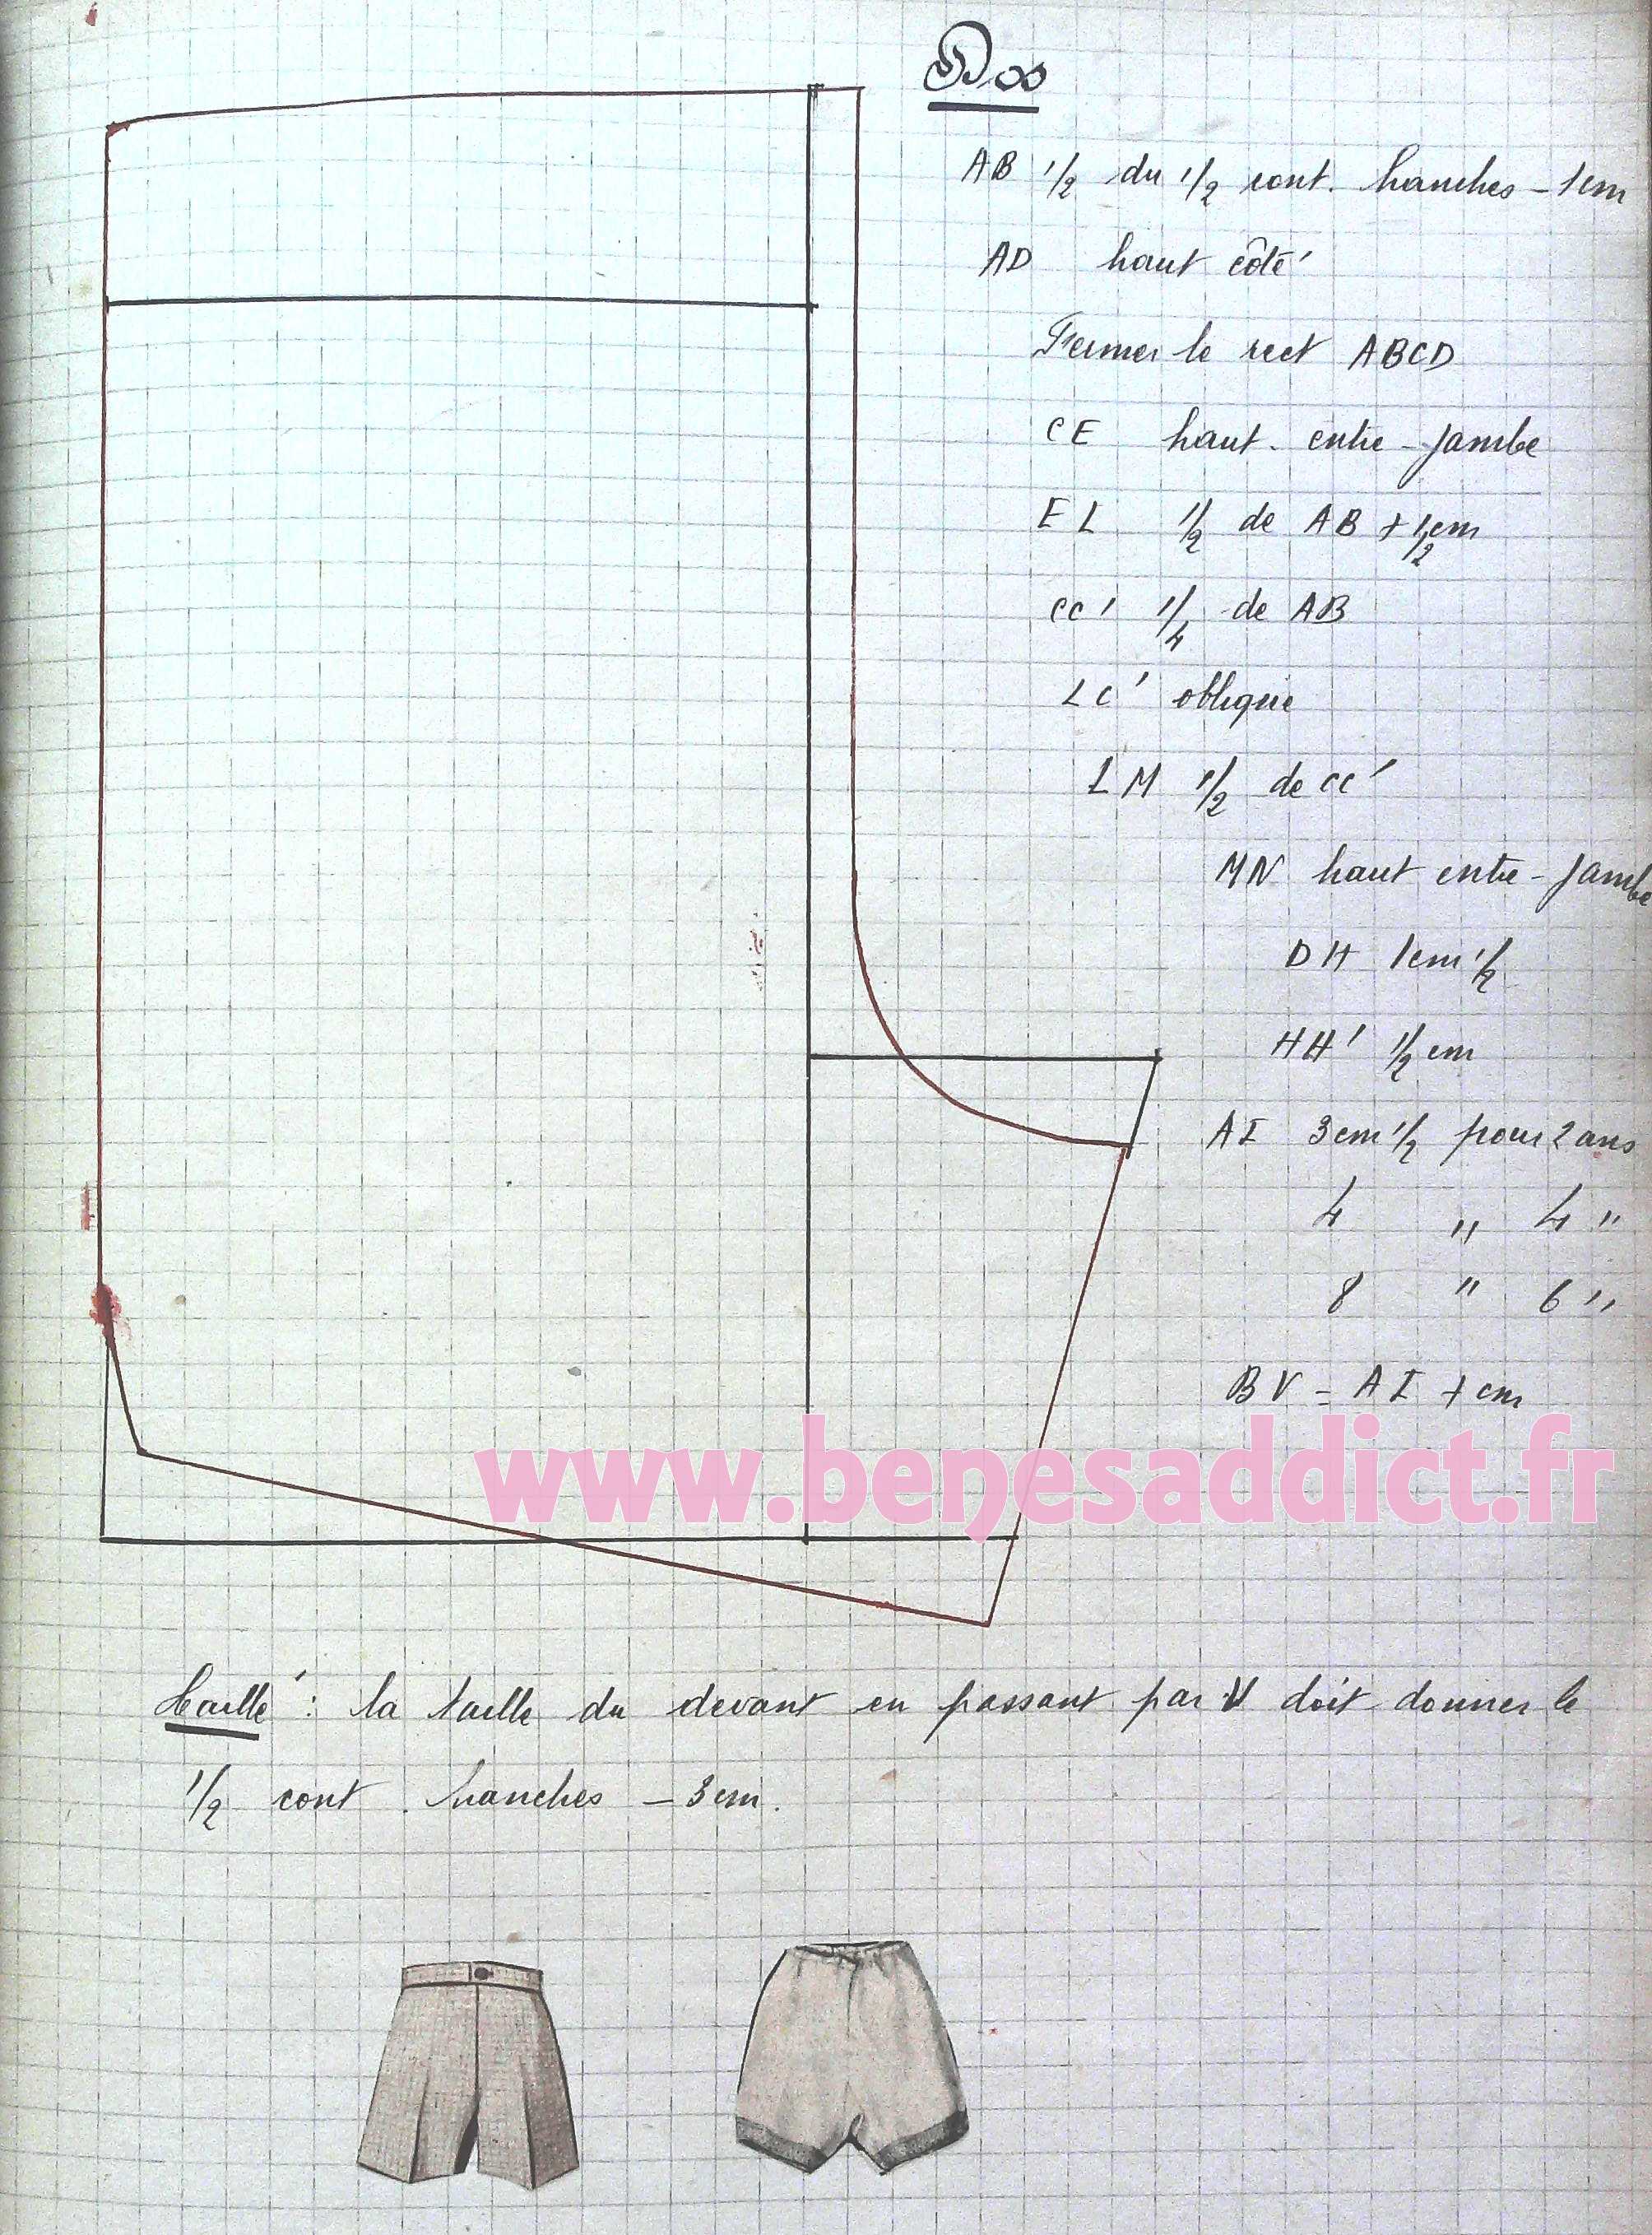 Dos
AB 1/2 du 1/2 cont. hanches - 1cm
AD haut côté
Fermer le rect ABCD
CE haut. entre-jambe
EL 1/2 de AB + 1/2 cm
CC' 1/4 de AB
LC' oblique
LM 1/2 de CC'
MN haut entre-jambe
DH 1cm 1/2
HH' 1/2 cm
AI 3cm 1/2 pour 2 ans
4 " 4 "
8 " 6 "
BV = AI + cm
www.benesaddict.fr
Taille : la taille du devant en passant par V doit donner le
1/2 cont. hanches - 3cm.